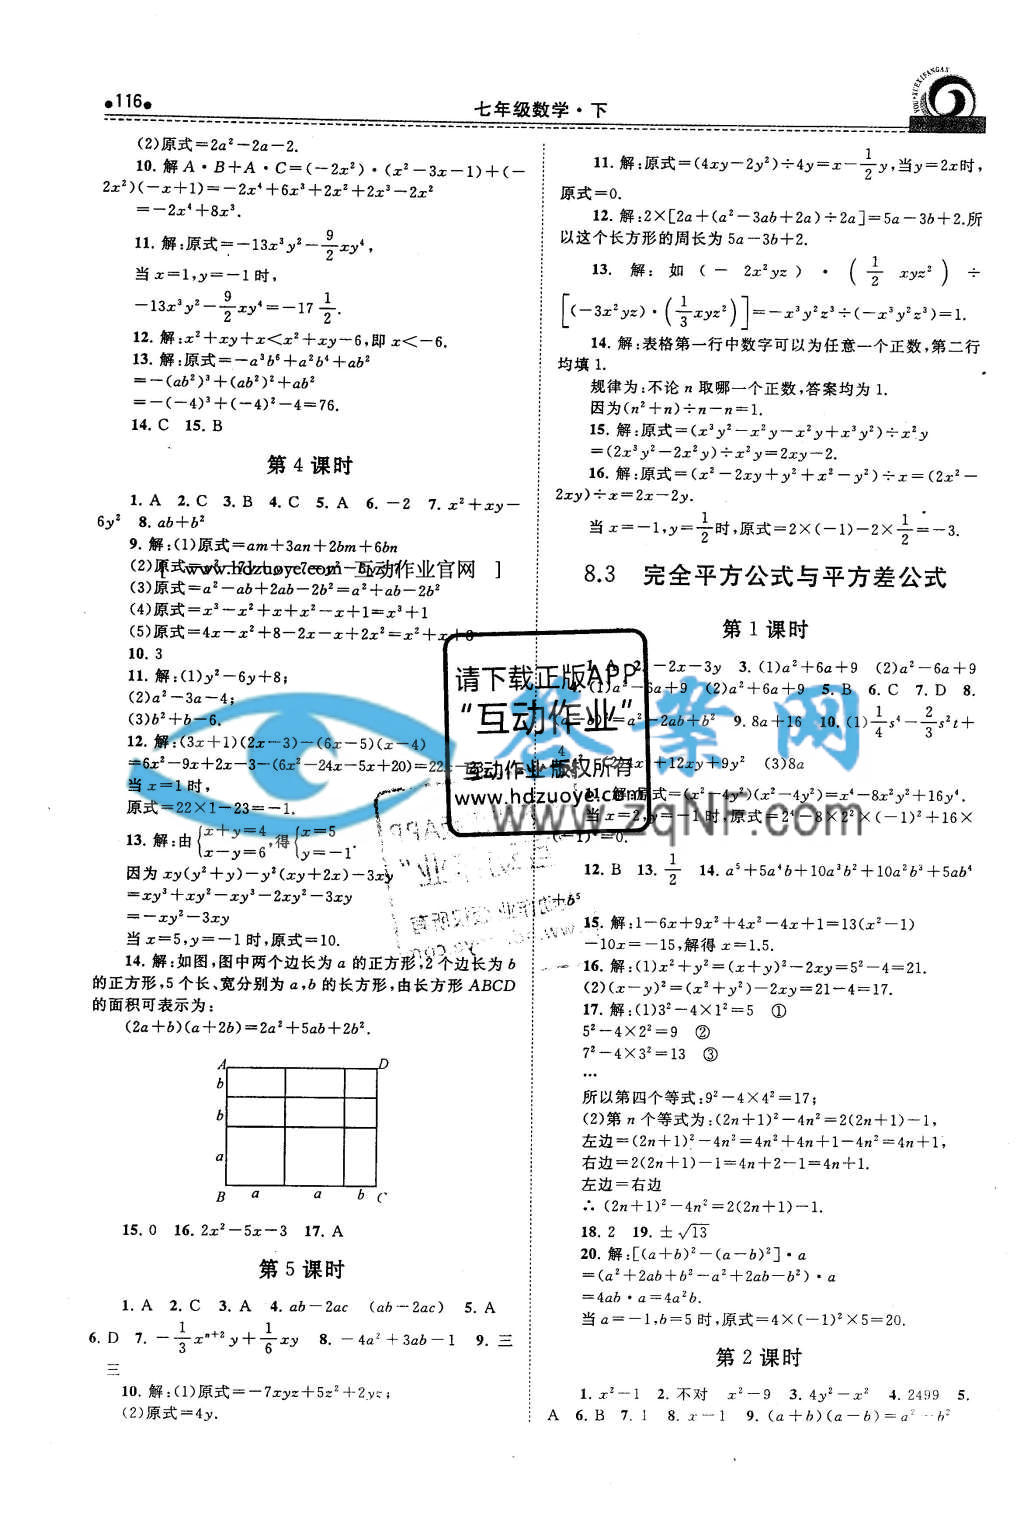 •116•
七年级数学·下
(2)原式=2a²-2a-2.
10. 解 A·B+A·C=(-2x²)·(x²-3x-1)+(-
2x²)(-x+1)=-2x⁴+6x³+2x²+2x³-2x²
=-2x⁴+8x³.
11. 解:原式=-13x³y²-9/2xy⁴,
当 x=1,y=-1 时,
-13x³y²-9/2xy⁴=-17 1/2.
12. 解:x²+xy+x<x²+xy-6,即 x<-6.
13. 解:原式=-a³b⁶+a²b⁴+ab²
=-(ab²)³+(ab²)²+ab²
=-(-4)³+(-4)²-4=76.
14. C 15. B
第 4 课时
1. A 2. C 3. B 4. C 5. A 6. -2 7. x²+xy-
6y² 8. ab+b²
9. 解:(1)原式=am+3an+2bm+6bn
(2)原式
[ www.hdzuoye.com 互动作业官网 ]
(3)原式=a²-ab+2ab-2b²=a²+ab-2b²
(4)原式=x³-x²+x+x²-x+1=x³+1
(5)原式=4x-x²+8-2x-x+2x²=x²+x+8
10. 3
11. 解:(1)y²-6y+8;
(2)a²-3a-4;
(3)b²+b-6.
12. 解:(3x+1)(2x-3)-(6x-5)(x-4)
=6x²-9x+2x-3-(6x²-24x-5x+20)=22x-23
当 x=1 时,
原式=22×1-23=-1.
13. 解:由{x+y=4 x-y=6,得{x=5 y=-1.
因为 xy(y²+y)-y²(xy+2x)-3xy
=xy³+xy²-xy³-2xy²-3xy
=-xy²-3xy
当 x=5,y=-1 时,原式=10.
14. 解:如图,图中两个边长为 a 的正方形,2 个边长为 b
的正方形,5 个长、宽分别为 a,b 的长方形,由长方形 ABCD
的面积可表示为:
(2a+b)(a+2b)=2a²+5ab+2b².
A D
b
b
a
B a a b C
15. 0 16. 2x²-5x-3 17. A
第 5 课时
1. A 2. C 3. A 4. ab-2ac (ab-2ac) 5. A
6. D 7. -1/3xⁿ⁺²y+1/6xy 8. -4a²+3ab-1 9. 三
三
10. 解:(1)原式=-7xyz+5z²+2yz;
(2)原式=4y.
11. 解:原式=(4xy-2y²)÷4y=x-1/2y,当y=2x时,
原式=0.
12. 解:2×[2a+(a²-3ab+2a)÷2a]=5a-3b+2.所
以这个长方形的周长为 5a-3b+2.
13. 解: 如 (-2x²yz)·(1/2xyz²)÷
[(-3x²yz)·(1/3xyz²)]=-x³y²z³÷(-x³y²z³)=1.
14. 解:表格第一行中数字可以为任意一个正数,第二行
均填 1.
规律为:不论 n 取哪一个正数,答案均为 1.
因为(n²+n)÷n-n=1.
15. 解:原式=(x³y²-x²y-x²y+x³y²)÷x²y
=(2x³y²-2x²y)÷x²y=2xy-2.
16. 解:原式=(x²-2xy+y²+x²-y²)÷x=(2x²-
2xy)÷x=2x-2y.
当 x=-1,y=1/2时,原式=2×(-1)-2×1/2=-3.
8.3 完全平方公式与平方差公式
第 1 课时
1. A 2. -2x-3y 3. (1)a²+6a+9 (2)a²-6a+9
4. (1)a²-6a+9 (2)a²+6a+9 5. B 6. C 7. D 8.
(a-b)²=a²-2ab+b² 9. 8a+16 10. (1)1/4s⁴-2/3s²t+
+12xy+9y² (3)8a
11. 解:原式=(x²-4y²)(x²-4y²)=x⁴-8x²y²+16y⁴.
当 x=2,y=-1 时,原式=2⁴-8×2²×(-1)²+16×
(-1)⁴=0.
12. B 13. 1/2 14. a⁵+5a⁴b+10a³b²+10a²b³+5ab⁴
+b⁵
15. 解:1-6x+9x²+4x²-4x+1=13(x²-1)
-10x=-15,解得 x=1.5.
16. 解:(1)x²+y²=(x+y)²-2xy=5²-4=21.
(2)(x-y)²=(x²+y²)-2xy=21-4=17.
17. 解:(1)3²-4×1²=5 ①
5²-4×2²=9 ②
7²-4×3²=13 ③
…
所以第四个等式:9²-4×4²=17;
(2)第 n 个等式为:(2n+1)²-4n²=2(2n+1)-1,
左边=(2n+1)²-4n²=4n²+4n+1-4n²=4n+1,
右边=2(2n+1)-1=4n+2-1=4n+1.
左边=右边
∴ (2n+1)²-4n²=2(2n+1)-1.
18. 2 19. ±√13
20. 解:[(a+b)²-(a-b)²]·a
=(a²+2ab+b²-a²+2ab-b²)·a
=4ab·a=4a²b.
当 a=-1,b=5 时,原式=4×(-1)²×5=20.
第 2 课时
1. x²-1 2. 不对 x²-9 3. 4y²-x² 4. 2499 5.
A 6. B 7. 1 8. x-1 9. (a+b)(a-b)=a²-b²
请下载正版APP
“互动作业”
互动作业 版权所有
www.hdzuoye.com
答案网
www.zqNF.com